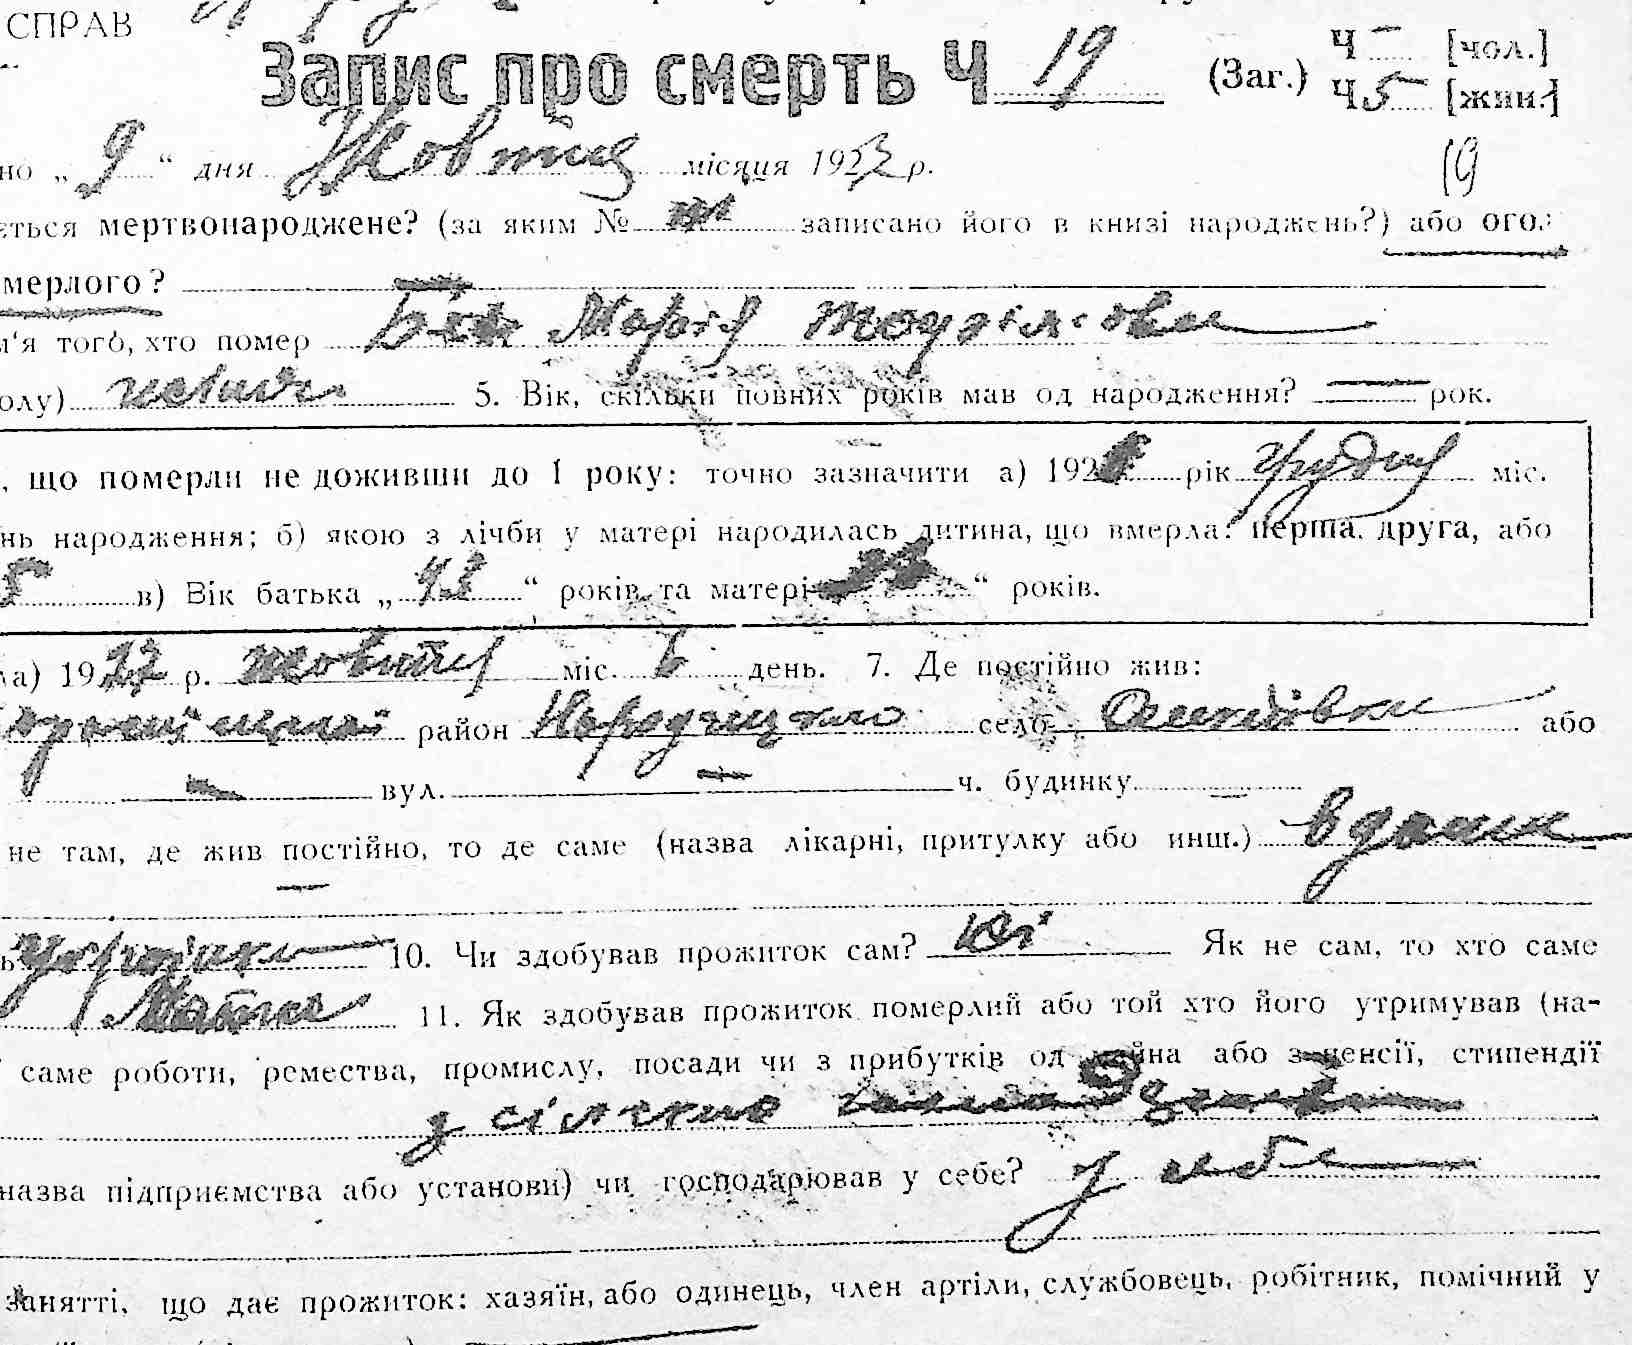 СПРАВ
Запис про смерть Ч 19 (Заг.) Ч — [чол.]
Ч 5 [жин.]
но „ 9 “ дня Жовтня місяця 1923 р. 19
ється мертвонароджене? (за яким № записано його в книзі народжень?) або ого
мерлого?
м'я того, хто помер Марія
олу) 5. Вік, скільки повних років мав од народження? — рок.
, що померли не доживши до 1 року: точно зазначити а) 192 рік Грудня міс.
нь народження; б) якою з лічби у матері народилась дитина, що вмерла: перша, друга, або
5 в) Вік батька „ 43 “ років та матері “ років.
ла) 19 р. жовтня міс. 6 день. 7. Де постійно жив:
район Народицького село або
— вул. — ч. будинку —
не там, де жив постійно, то де саме (назва лікарні, притулку або инш.) вдома
—
ь 10. Чи здобував прожиток сам? ні Як не сам, то хто саме
Мати 11. Як здобував прожиток померлий або той хто його утримував (на-
саме роботи, ремества, промислу, посади чи з прибутків од майна або з пенсії, стипендії
з сільского
назва підприємства або установи) чи господарював у себе? у себе
занятті, що дає прожиток: хазяїн, або одинець, член артіли, службовець, робітник, помічний у